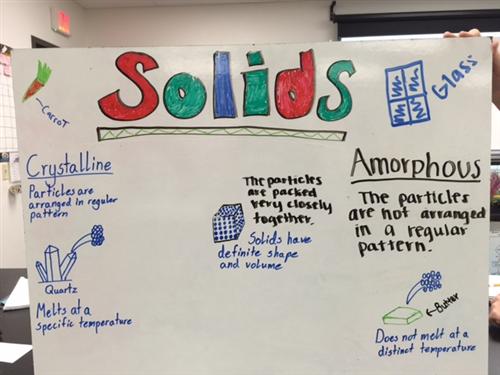 Solids
Carrot
Glass
Crystalline
Particles are
arranged in regular
pattern
Quartz
Melts at a
specific temperature
The particles
are packed
very closely
together.
Solids have
definite shape
and volume
Amorphous
The particles
are not arranged
in a regular
pattern.
Butter
Does not melt at a
distinct temperature